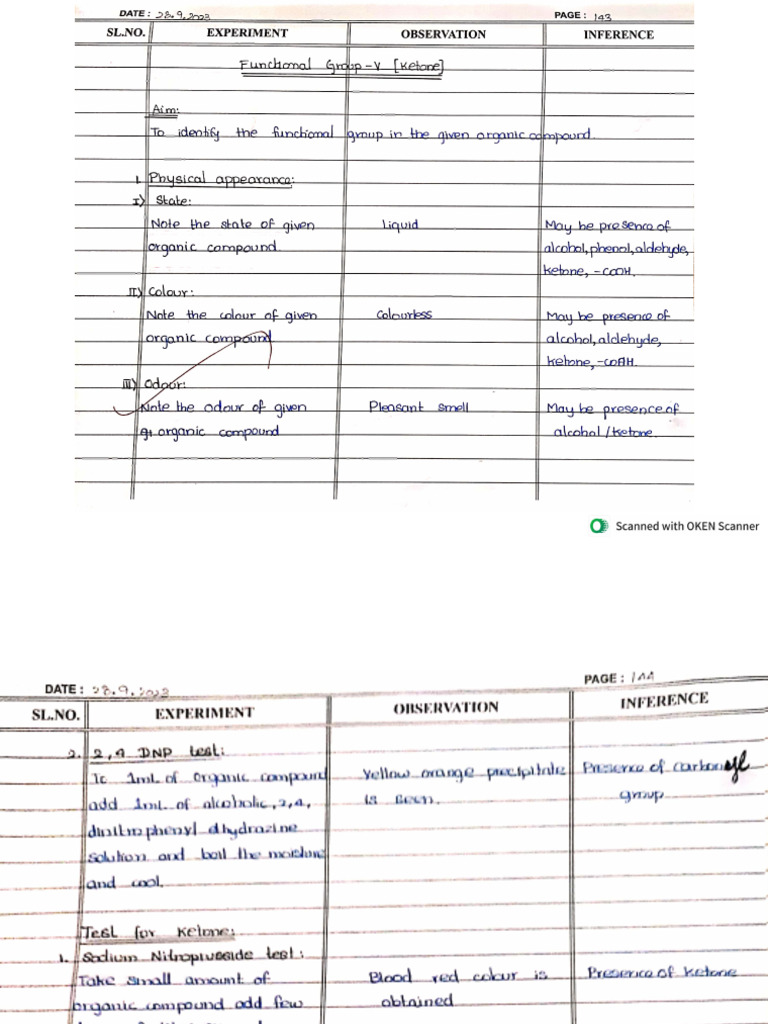 DATE: 28.9.2023 PAGE: 143
SL.NO. EXPERIMENT OBSERVATION INFERENCE
Functional Group-V [Ketone]
Aim:
To identify the functional group in the given organic compound.
1. Physical appearance:
I) State:
Note the state of given Liquid May be presence of
organic compound. alcohol, phenol, aldehyde,
ketone, -COOH.
II) Colour:
Note the colour of given Colourless May be presence of
organic compound alcohol, aldehyde,
ketone, -COOH.
III) Odour:
Note the odour of given Pleasant smell May be presence of
organic compound alcohol/ketone.
Scanned with OKEN Scanner
DATE: 28.9.2023 PAGE: 144
SL.NO. EXPERIMENT OBSERVATION INFERENCE
2. 2,4 DNP test:
To 1mL of organic compound Yellow orange precipitate Presence of carbonyl
add 1mL of alcoholic, 2,4, is seen. group
dinitrophenyl dhydrazine
solution and boil the moisture
and cool.
Test for Ketone:
1. Sodium Nitroprusside test:
Take small amount of Blood red colour is Presence of ketone
organic compound add few obtained